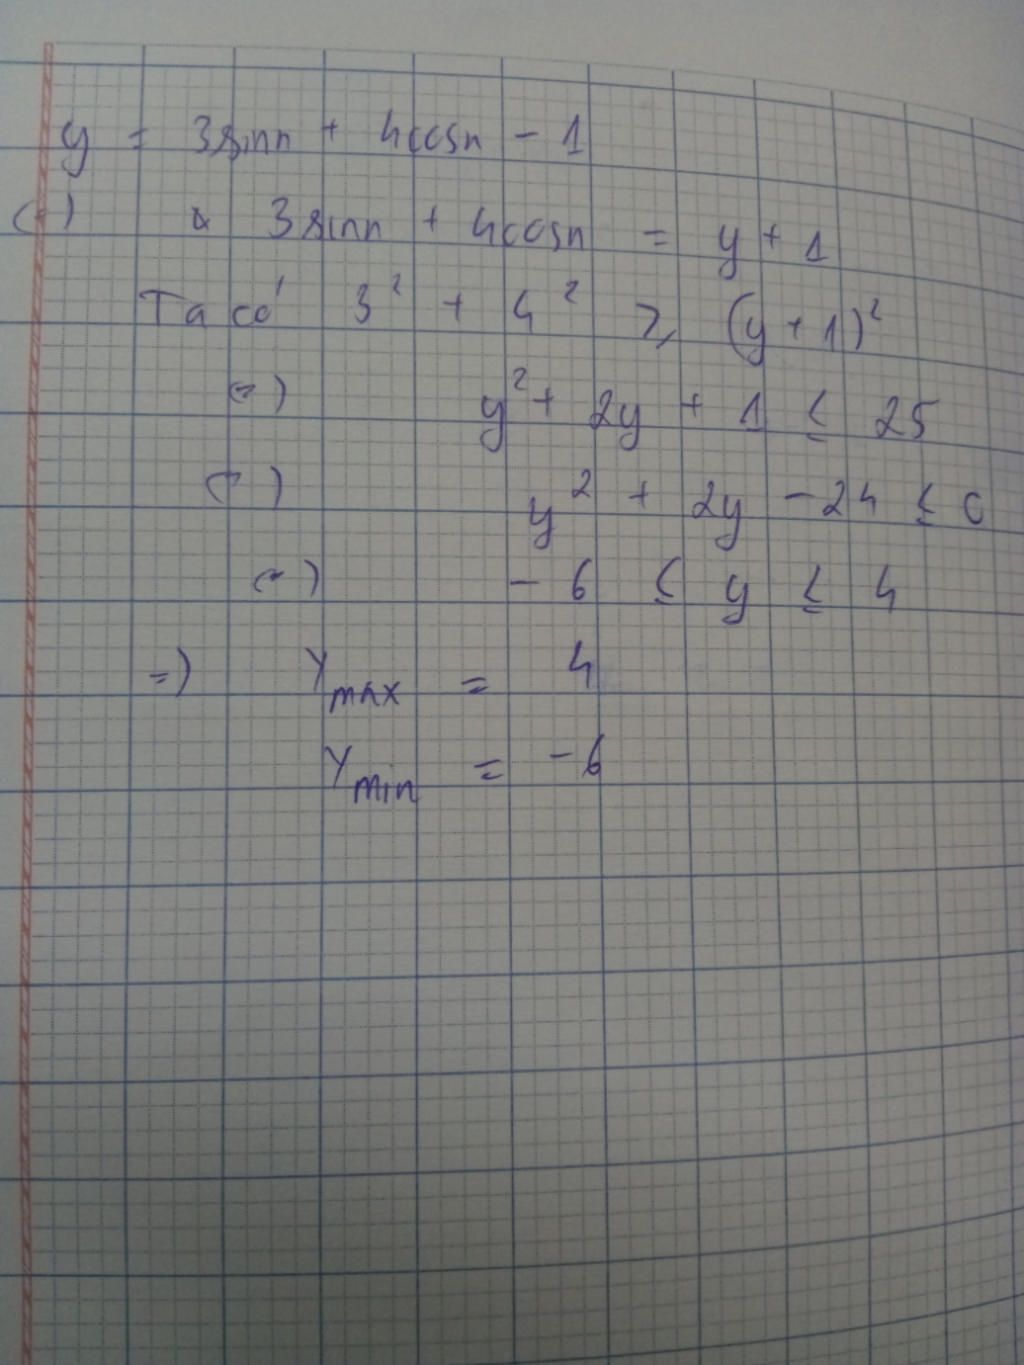 y = 3sinx + 4cosx - 1
(=) 3sinx + 4cosx = y + 1
Ta có 3² + 4² ≥ (y + 1)²
(=) y² + 2y + 1 ≤ 25
(=) y² + 2y - 24 ≤ 0
(=) - 6 ≤ y ≤ 4
=) Ymax = 4
Ymin = -6